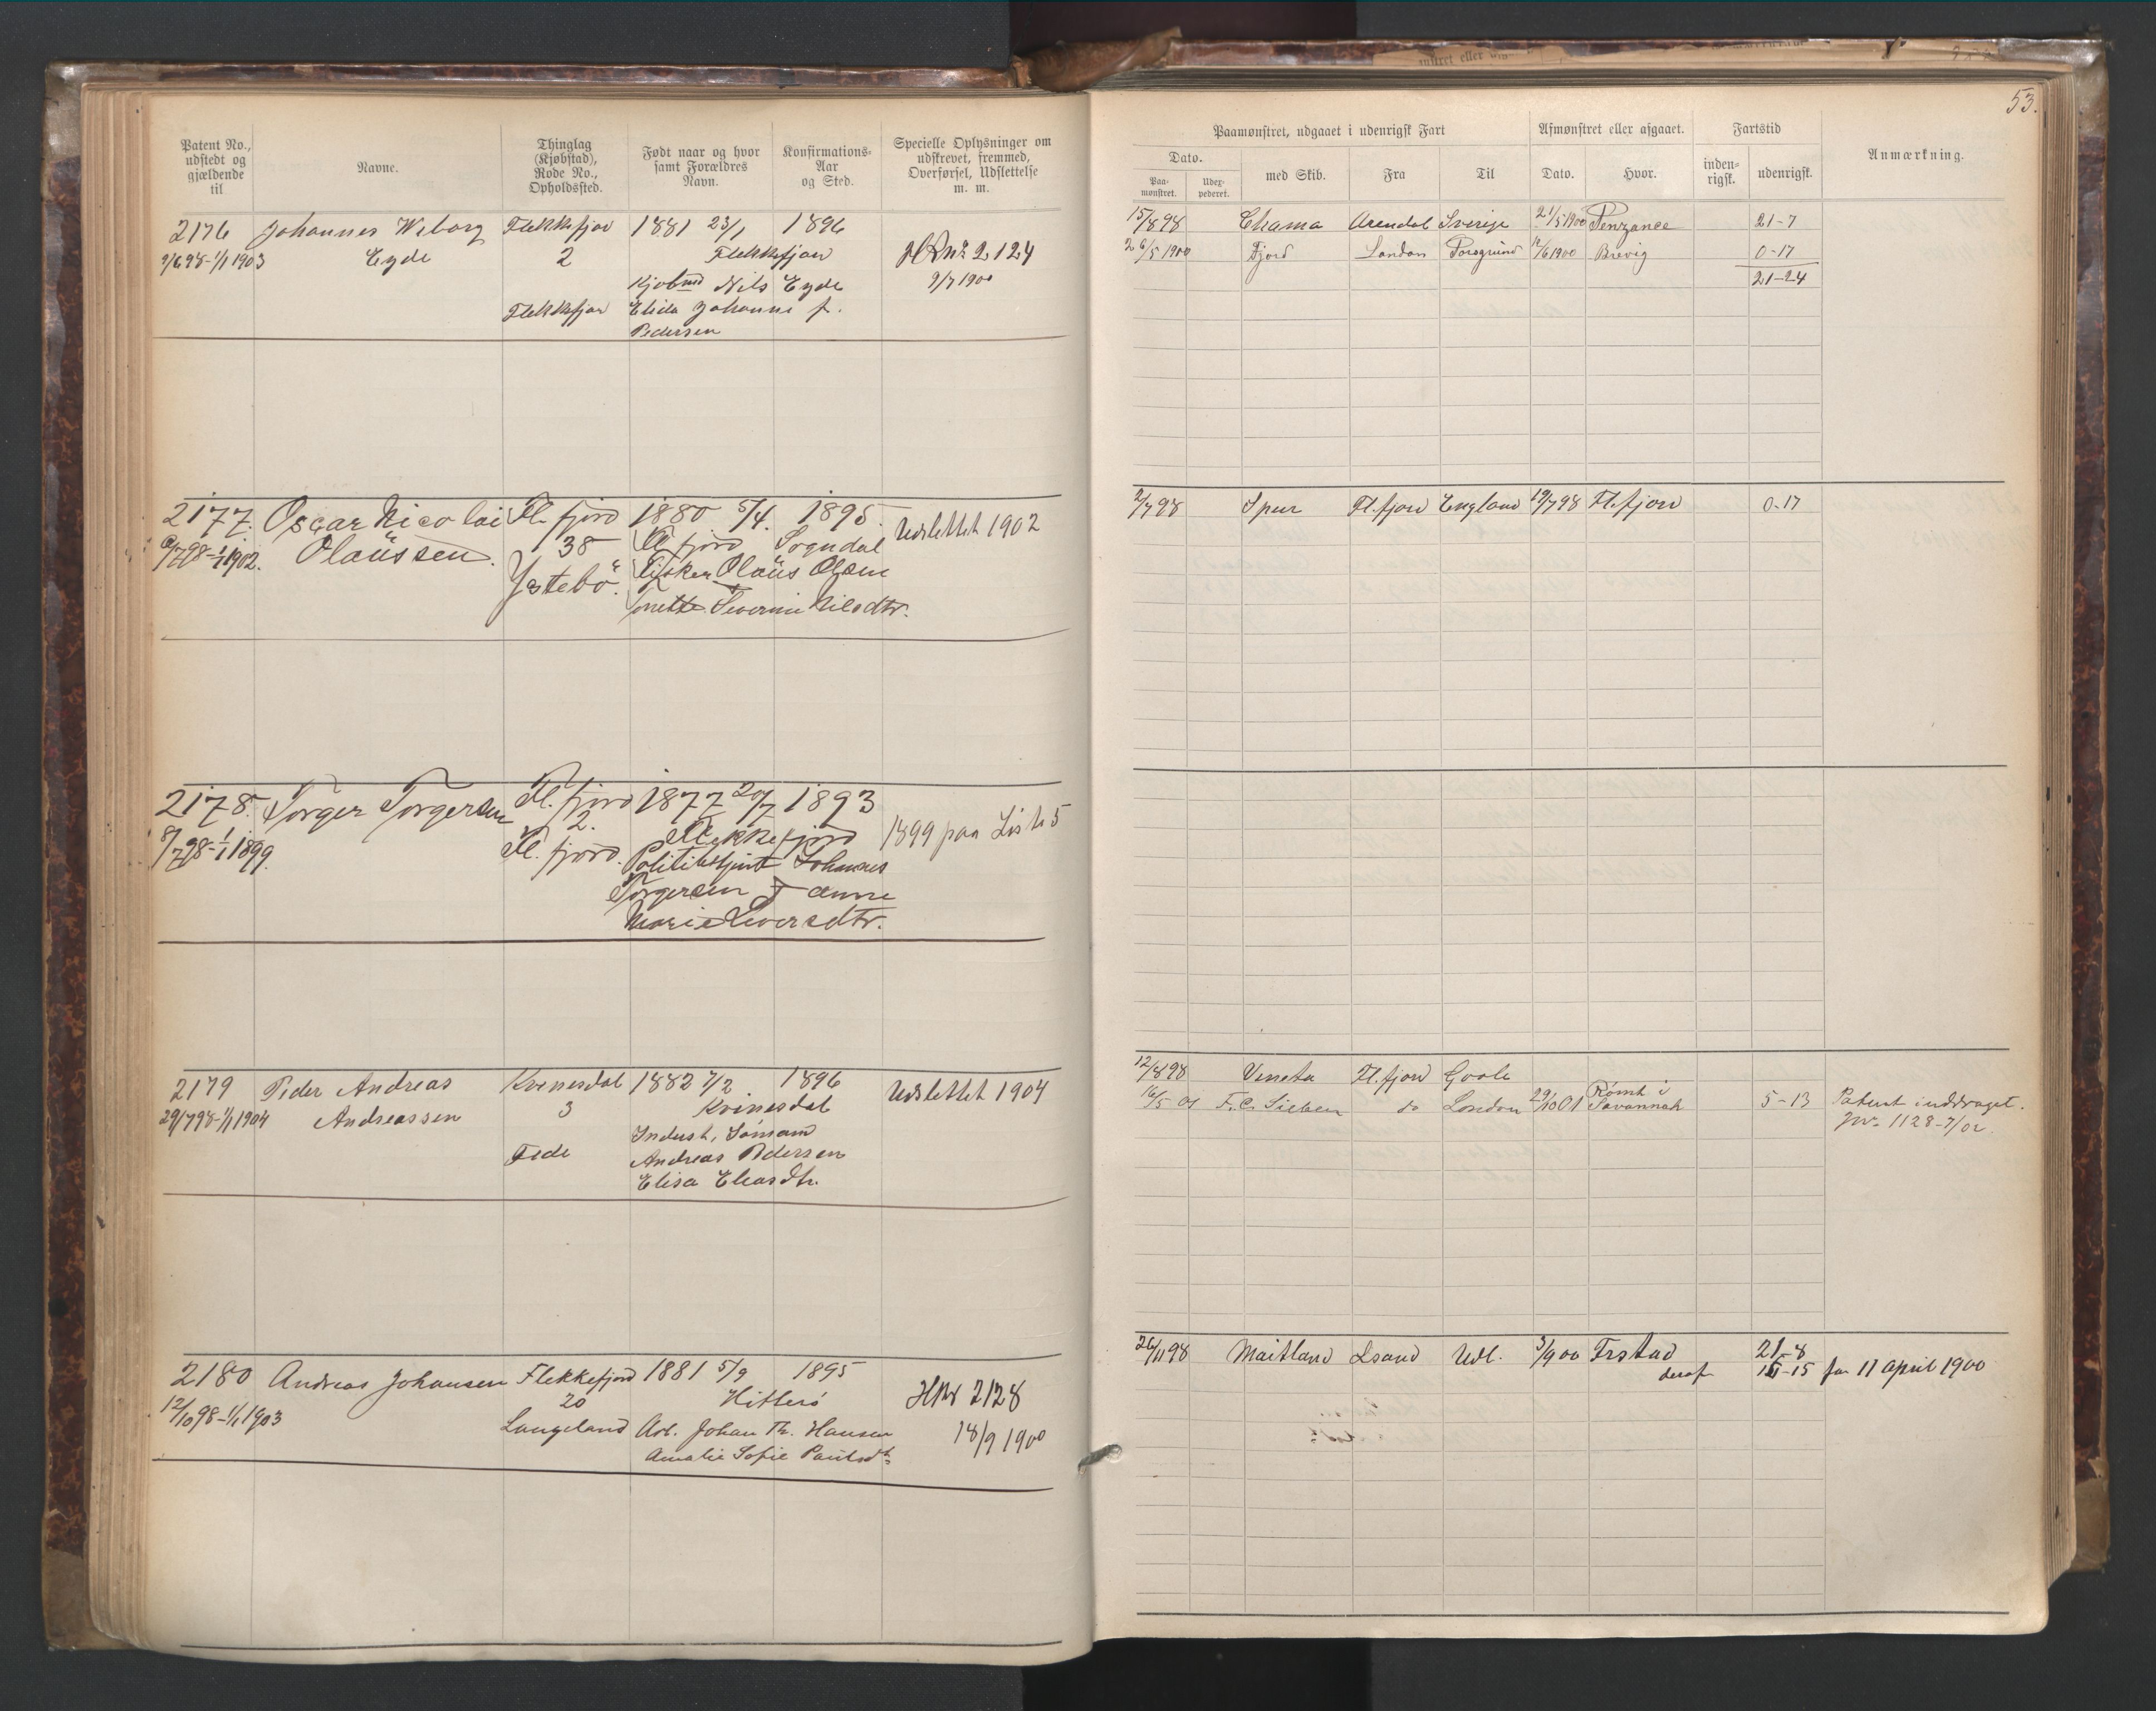 53.
Patent No., udstedt og gjældende til
Navne.
Thinglag (Kjøbstad), Rode No., Opholdssted.
Født naar og hvor samt Forældres Navn.
Konfirmations-Aar og Sted.
Specielle Oplysninger om udskrevet, fremmed, Overførsel, Udslettelse m. m.
Paamønstret, udgaaet i udenrigsk Fart
Afmønstret eller afgaaet.
Fartstid
Anmærkning.
Dato.
Paa-mønstret.
Udex-pederet.
med Skib.
Fra
Til
Dato.
Hvor.
inden-rigsk.
udenrigsk.
2176 Johannes Wiborg Flekkefjor 1881 23/1 1896
9/6 98-1/1 1903 Eyde 2 Flekkefjor HR No 2124
Kjøbmd Nils Eyde 9/7 1900
Flekkefjor Elida Johanne f.
Pedersen
15/8 98 Chama Arendal Sverige 21/5 1900 Penzance 21-7
26/5 1900 Fjord London Porsgrund 12/6 1900 Brevig 0-17
21-24
2177. Oscar Nicolai Fl. fjord 1880 5/4. 1895. Udslettet 1902
2/7 98-1/1 1902. Olaüssen. 38 Fl. fjord Sogndal
Ystebö. Fisker Olaüs Olsen
Severine Nilsdtr.
2/7 98 Spur Fl. fjord England 19/7 98 Fl. fjord 0-17
2178. Torger Torgersen Fl. fjord 1877 20/7 1893
8/7 98-1/1 1899. 2. Flekkefjord 1899 paa Liste 5
Fl. fjord. Politibetjent Johannes
Torgersen & Anne
Marie Siversdtr.
2179 Peder Andreas Kvinesdal 1882 7/2 1896 Udslettet 1904
29/7 98-1/1 1904 Andreassen 3 Kvinesdal
Indust, Sömand
Fede Andreas Pedersen
Elisa Eliasdtr.
12/8 98 Veneta Fl. fjord Goole
16/5 01 F. C. Sieben do London 29/10 01 Rømt i Savannah 5-13 Patent inddraget.
Jnr. 1128-7/02.
2180 Andreas Johansen Flekkefjord 1881 5/9 1895
12/10 98-1/1 1903 20 Hitterö HNr 2128
Langeland Arb. Johan Th. Hansen 18/9 1900
Amalie Sofie Paulsdtr
26/11 98 Maitland Lsand Udl. 3/9 00 Frstad 21-8
deraf 16-15 før 11 April 1900